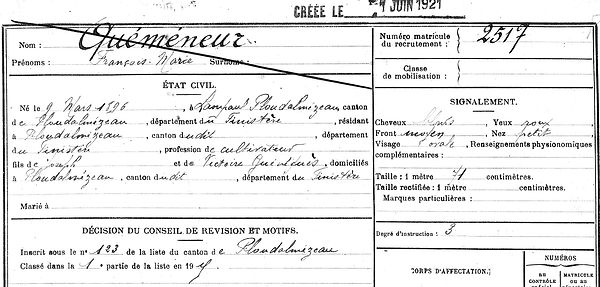 CRÉÉE LE 7 JUIN 1921
Nom : Quéméneur
Prénoms : François Marie Surnoms :
ÉTAT CIVIL.
Né le 9 Mars 1896, à Lampaul Ploudalmézeau canton
de Ploudalmézeau, département du Finistère, résidant
à Ploudalmézeau, canton dudit, département
du Finistère, profession de cultivateur
fils de Joseph et de Victoire Quiviniès, domiciliés
à Ploudalmézeau, canton dudit, département du Finistère
Marié à
DÉCISION DU CONSEIL DE REVISION ET MOTIFS.
Inscrit sous le n° 123 de la liste du canton de Ploudalmézeau
Classé dans la 1e partie de la liste en 19
Numéro matricule
du recrutement : 2517
Classe
de mobilisation :
SIGNALEMENT.
Cheveux Yeux roux
Front moyen Nez petit
Visage ovale, Renseignements physionomiques
complémentaires :
Taille : 1 mètre 71 centimètres.
Taille rectifiée : 1 mètre centimètres.
Marques particulières :
Degré d'instruction : 3
CORPS D'AFFECTATION.
NUMÉROS
AU
CONTRÔLE
MATRICULE